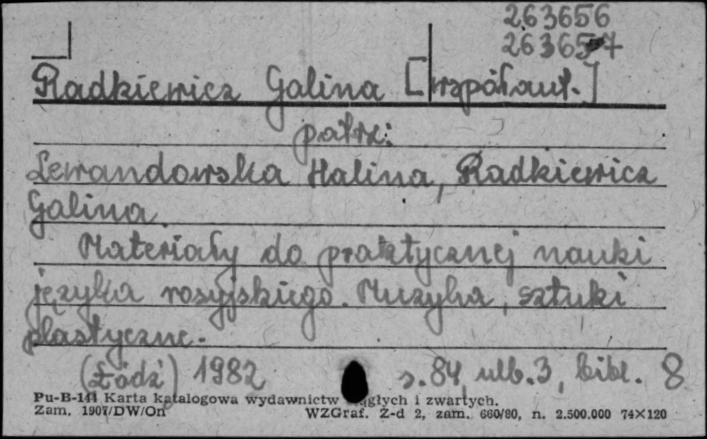 263656
263657
Radkiewicz Galina [współaut.]
patrz:
Lewandowska Halina, Radkiewicz
Galina
Materiały do praktycznej nauki
języka rosyjskiego. Muzyka, sztuki
plastyczne.
(Łódź) 1982 s. 84, nlb. 3, bibl. 8
Pu-B-141 Karta katalogowa wydawnictw ciągłych i zwartych.
Zam. 1907/DW/On WZGraf. Z-d 2, zam. 660/80, n. 2.500.000 74×120